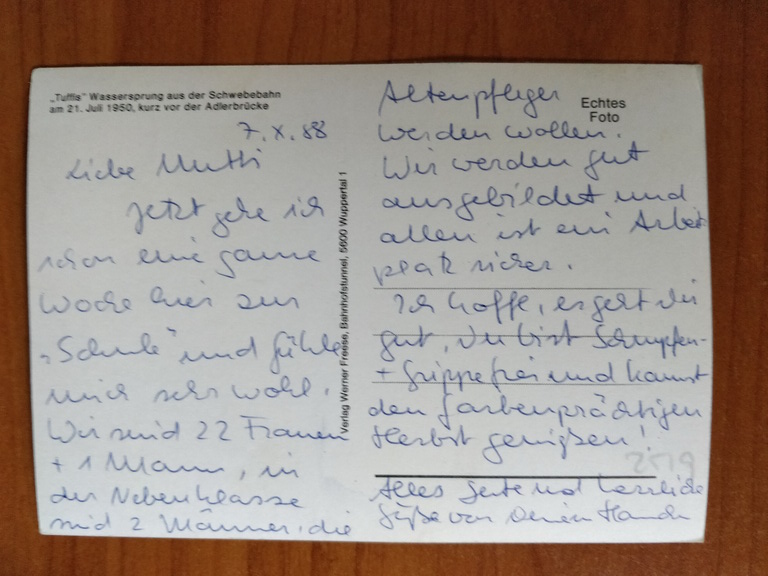 „Tuffis" Wassersprung aus der Schwebebahn
am 21. Juli 1950, kurz vor der Adlerbrücke
7. X. 88
Liebe Mutti
Jetzt gehe ich
schon eine ganze
Woche hier zur
„Schule" und fühle
mich sehr wohl.
Wir sind 22 Frauen
+ 1 Mann, in
der Nebenklasse
sind 2 Männer, die
Verlag Werner Freese, Bahnhofstunnel, 5600 Wuppertal 1
Echtes
Foto
Altenpfleger
werden wollen.
Wir werden gut
ausgebildet und
allen ist ein Arbeits
platz sicher.
Ich hoffe, es geht dir
gut, du bist Schnupfen-
+ Grippefrei und kannst
den farbenprächtigen
Herbst genießen!
2519
Alles Gute und herzliche
Grüße von Deiner